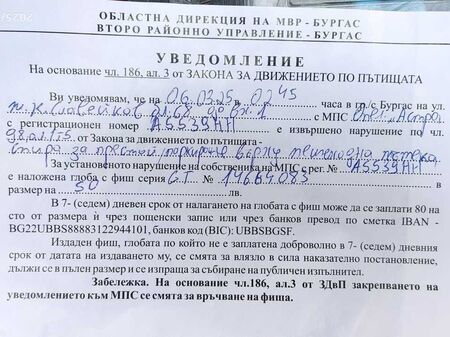 ОБЛАСТНА ДИРЕКЦИЯ НА МВР - БУРГАС
ВТОРО РАЙОННО УПРАВЛЕНИЕ - БУРГАС
УВЕДОМЛЕНИЕ
На основание чл. 186, ал. 3 от ЗАКОНА ЗА ДВИЖЕНИЕТО ПО ПЪТИЩАТА
Ви уведомявам, че на 06.03.25 в 0245 часа в гр/с Бургас на ул.
ж.к Славейков бл. до вх. 1 с МПС Опел Астра
с регистрационен номер А5539НН е извършено нарушение по чл.
98, ал. 1 т. 5 от Закона за движението по пътищата -
спира за престой паркиране върху пешеходна пътека
За установеното нарушение на собственика на МПС с рег. № А5539НН
е наложена глоба с фиш серия GT № 14684093 в
размер на 50 лв.
В 7- (седем) дневен срок от налагането на глобата с фиш може да се заплати 80 на
сто от размера ѝ чрез пощенски запис или чрез банков превод по сметка IBAN -
BG22UBBS88883122944101, банков код (BIC): UBBSBGSF.
Издаден фиш, глобата по който не е заплатена доброволно в 7- (седем) дневния
срок от датата на издаването му, се смята за влязло в сила наказателно постановление,
дължи се в пълен размер и се изпраща за събиране на публичен изпълнител.
Забележка. На основание чл.186, ал.3 от ЗДвП закрепването на
уведомлението към МПС се смята за връчване на фиша.